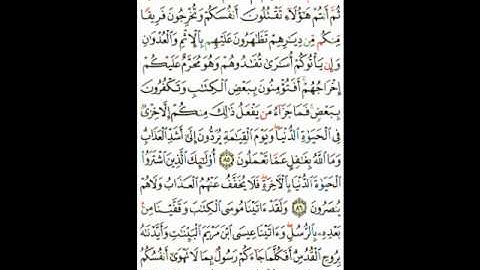 ثُمَّ أَنتُمْ هَٰٓؤُلَآءِ تَقْتُلُونَ أَنفُسَكُمْ وَتُخْرِجُونَ فَرِيقًا
مِّنكُم مِّن دِيَٰرِهِمْ تَظَٰهَرُونَ عَلَيْهِم بِٱلْإِثْمِ وَٱلْعُدْوَٰنِ
وَإِن يَأْتُوكُمْ أُسَٰرَىٰ تُفَٰدُوهُمْ وَهُوَ مُحَرَّمٌ عَلَيْكُمْ
إِخْرَاجُهُمْ ۚ أَفَتُؤْمِنُونَ بِبَعْضِ ٱلْكِتَٰبِ وَتَكْفُرُونَ
بِبَعْضٍ ۚ فَمَا جَزَآءُ مَن يَفْعَلُ ذَٰلِكَ مِنكُمْ إِلَّا خِزْىٌ
فِى ٱلْحَيَوٰةِ ٱلدُّنْيَا ۖ وَيَوْمَ ٱلْقِيَٰمَةِ يُرَدُّونَ إِلَىٰٓ أَشَدِّ ٱلْعَذَابِ ۗ
وَمَا ٱللَّهُ بِغَٰفِلٍ عَمَّا تَعْمَلُونَ ٨٥ أُو۟لَٰٓئِكَ ٱلَّذِينَ ٱشْتَرَوُا۟
ٱلْحَيَوٰةَ ٱلدُّنْيَا بِٱلْءَاخِرَةِ ۖ فَلَا يُخَفَّفُ عَنْهُمُ ٱلْعَذَابُ وَلَا هُمْ
يُنصَرُونَ ٨٦ وَلَقَدْ ءَاتَيْنَا مُوسَى ٱلْكِتَٰبَ وَقَفَّيْنَا مِنۢ
بَعْدِهِۦ بِٱلرُّسُلِ ۖ وَءَاتَيْنَا عِيسَى ٱبْنَ مَرْيَمَ ٱلْبَيِّنَٰتِ وَأَيَّدْنَٰهُ
بِرُوحِ ٱلْقُدُسِ ۗ أَفَكُلَّمَا جَآءَكُمْ رَسُولٌۢ بِمَا لَا تَهْوَىٰٓ أَنفُسُكُمُ